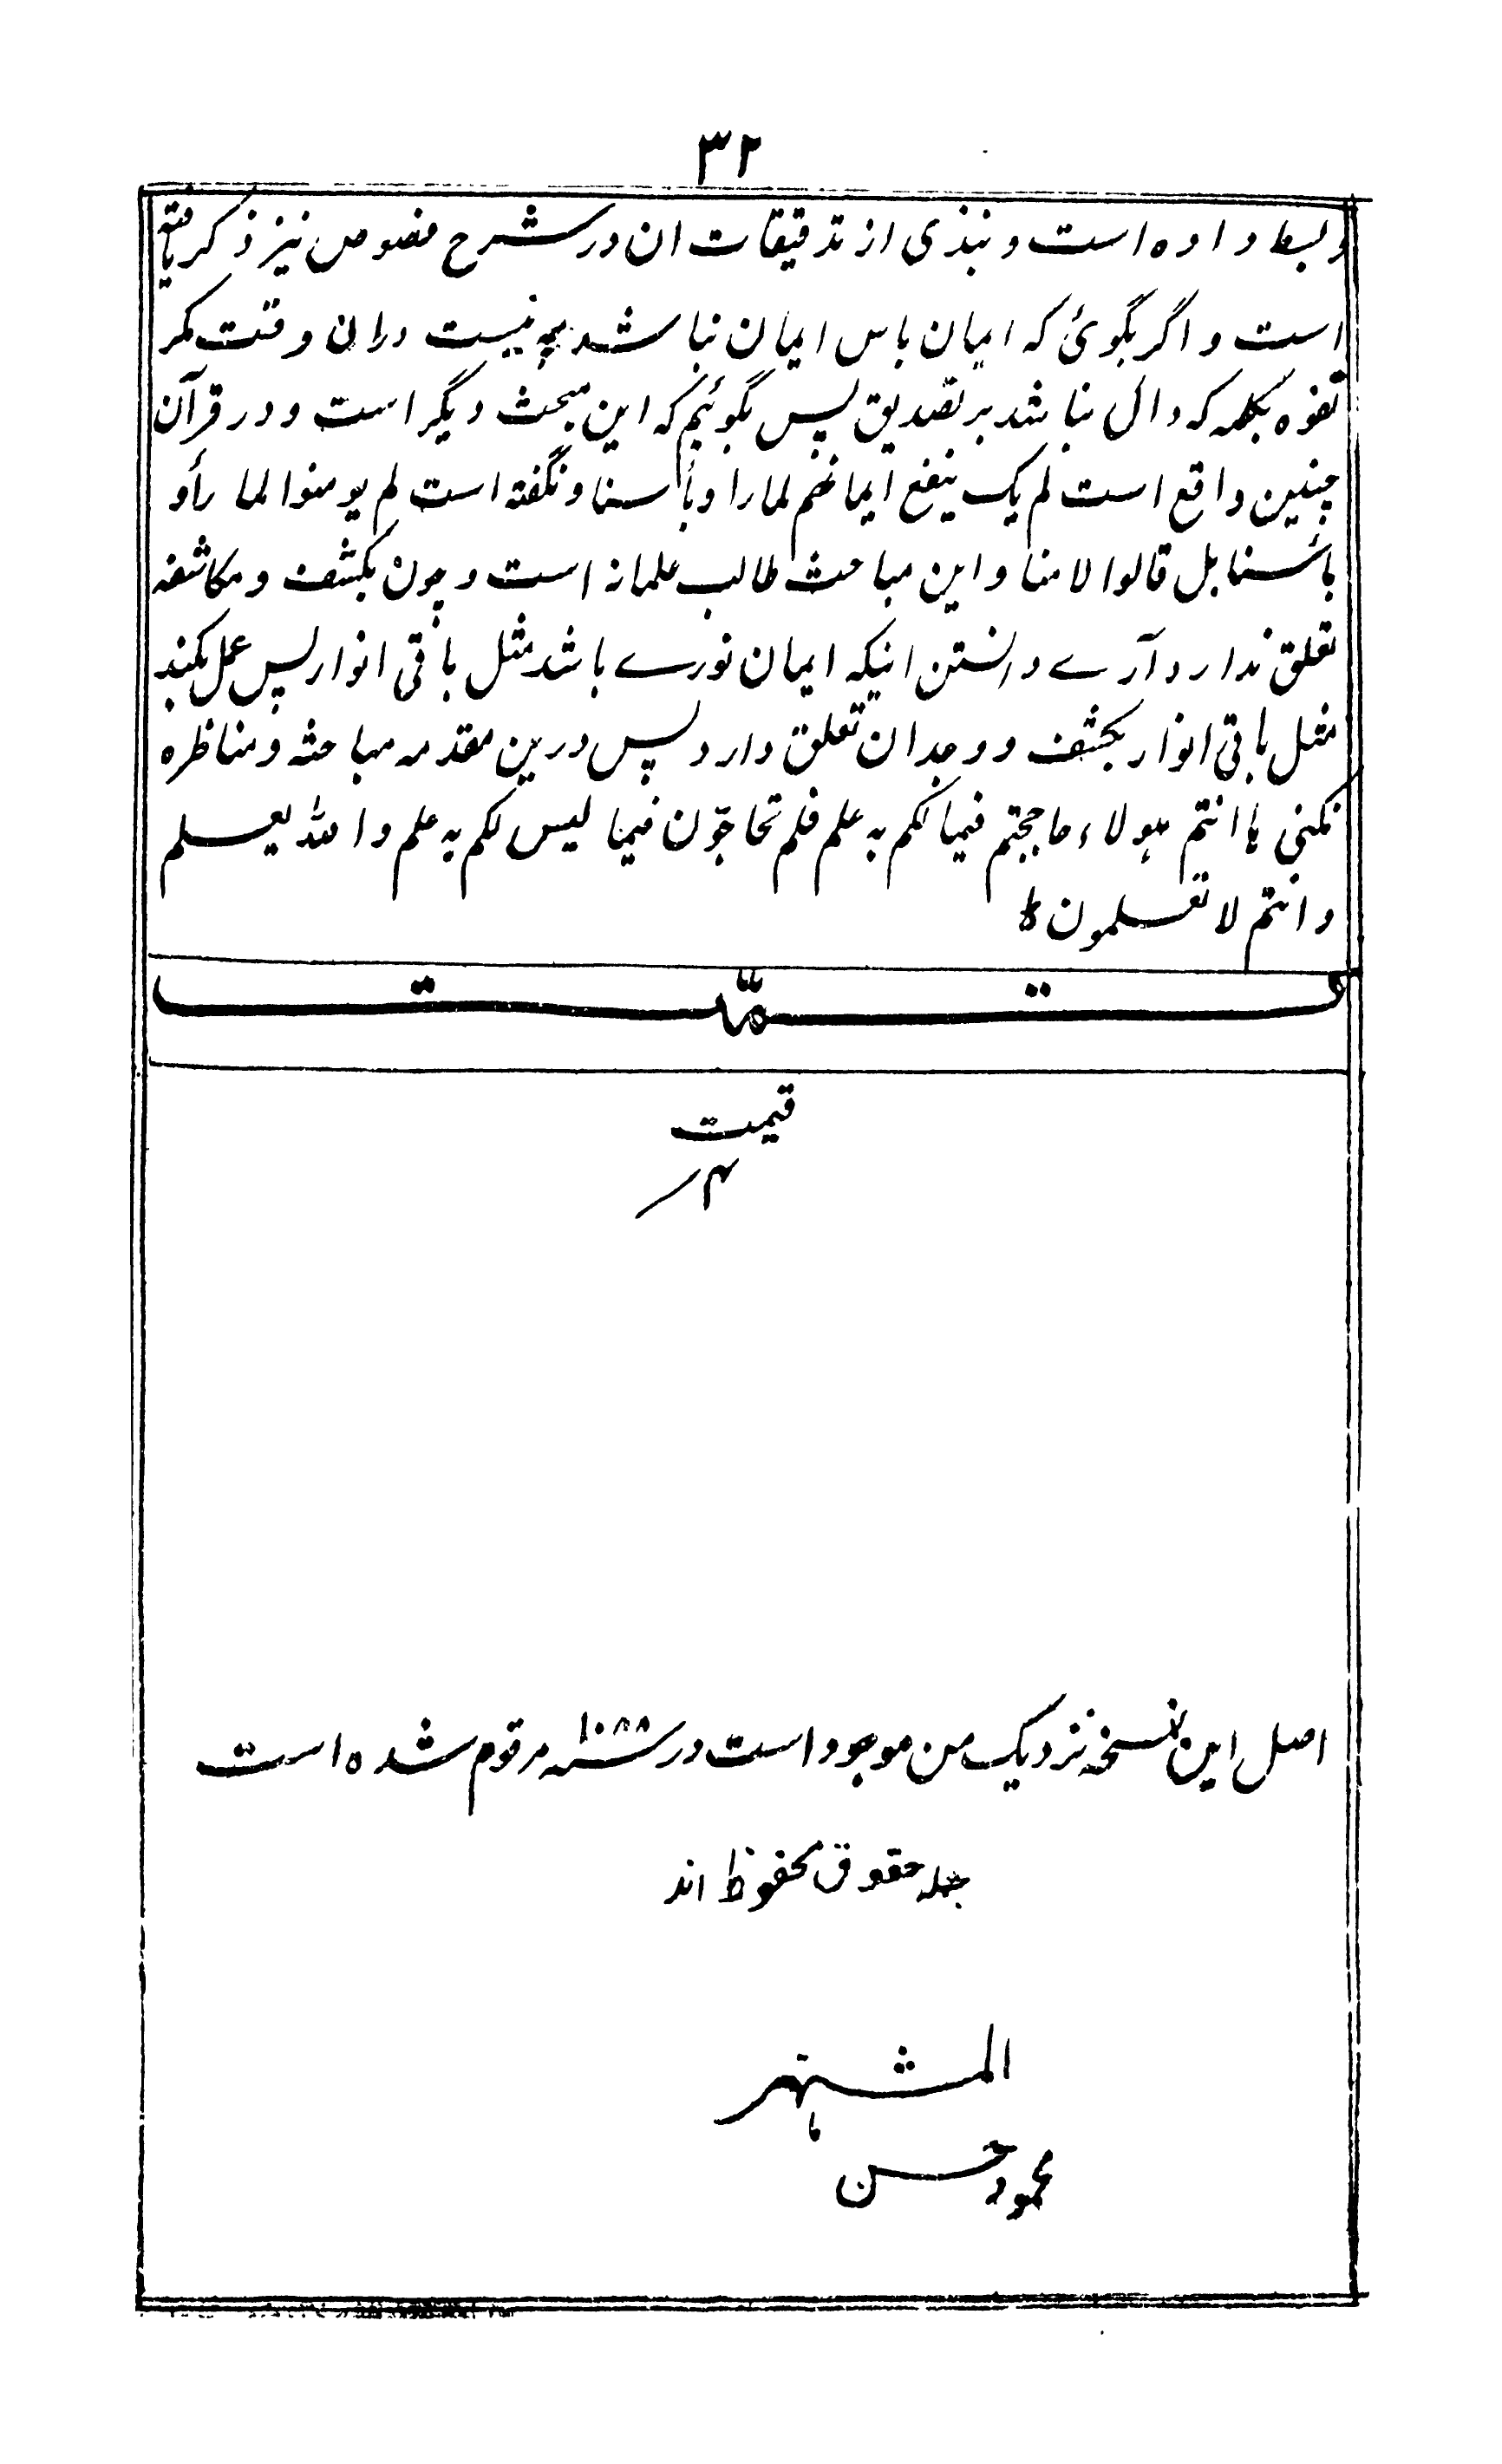 ۳۲
و بسط داده است و نبذی از تدقیقات ان در شرح فصوص نیز ذکر یافته
است و اگر بگوئ که ایمان باس ایمان نباشد چه نیست دران وقت مگر
تفوه بکلمه که دال نباشد بر تصدیق پس بگوئیم که این مبحث دیگر است و در قرآن
چنین واقع است لم یک ینفع ایمانهم لما راوبأسنا و نگفته است لم یومنوا لما رأو
بأسنا بل قالوا لامنا و این مباحث طالب علمانه است و چون بکشف و مکاشفه
تعلق ندارد آرے دانستن اینکه ایمان نورے باشد مثل باقی انوار پس عمل بکند
مثل باقی انوار بکشف و وجدان تعلق دارد پس درین مقدمه مباحثه و مناظره
نکنی ها انتم هولاء حاججتم فیما لکم به علم فلم تحاجّون فیما لیس لکم به علم والله یعلم
و انتم لا تعلمون ط
تمّت
قیمت
۴؍
اصل این نسخه نزدیک من موجود است در سنه ۱۰۸۸ مرقوم شده است
جمله حقوق محفوظ اند
المشتهر
محمود حسن